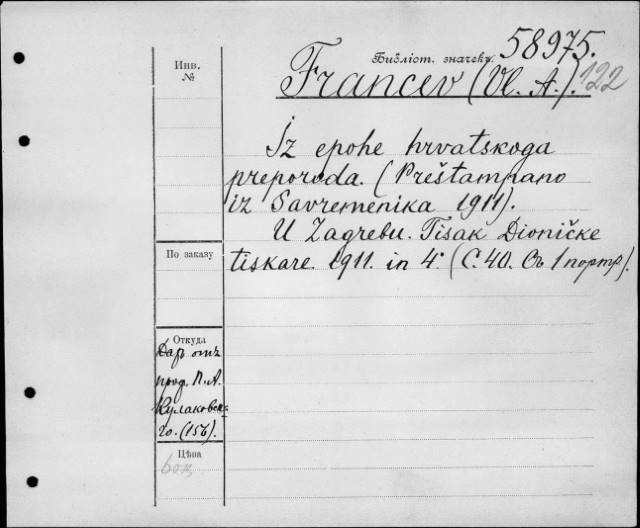 58975.
Библіот. значекъ.
Инв.
№
Francev (Vl. A.). 122
Iz epohe hrvatskoga
preporoda. (Preštampano
iz Savremenika 1911).
U Zagrebu. Tisak Dioničke
tiskare. 1911. in 4°. (С. 40. Съ 1 портр).
По заказу
Откуда
Даръ отъ
проф. П. А.
Кулаковска-
го. (156).
Цѣна